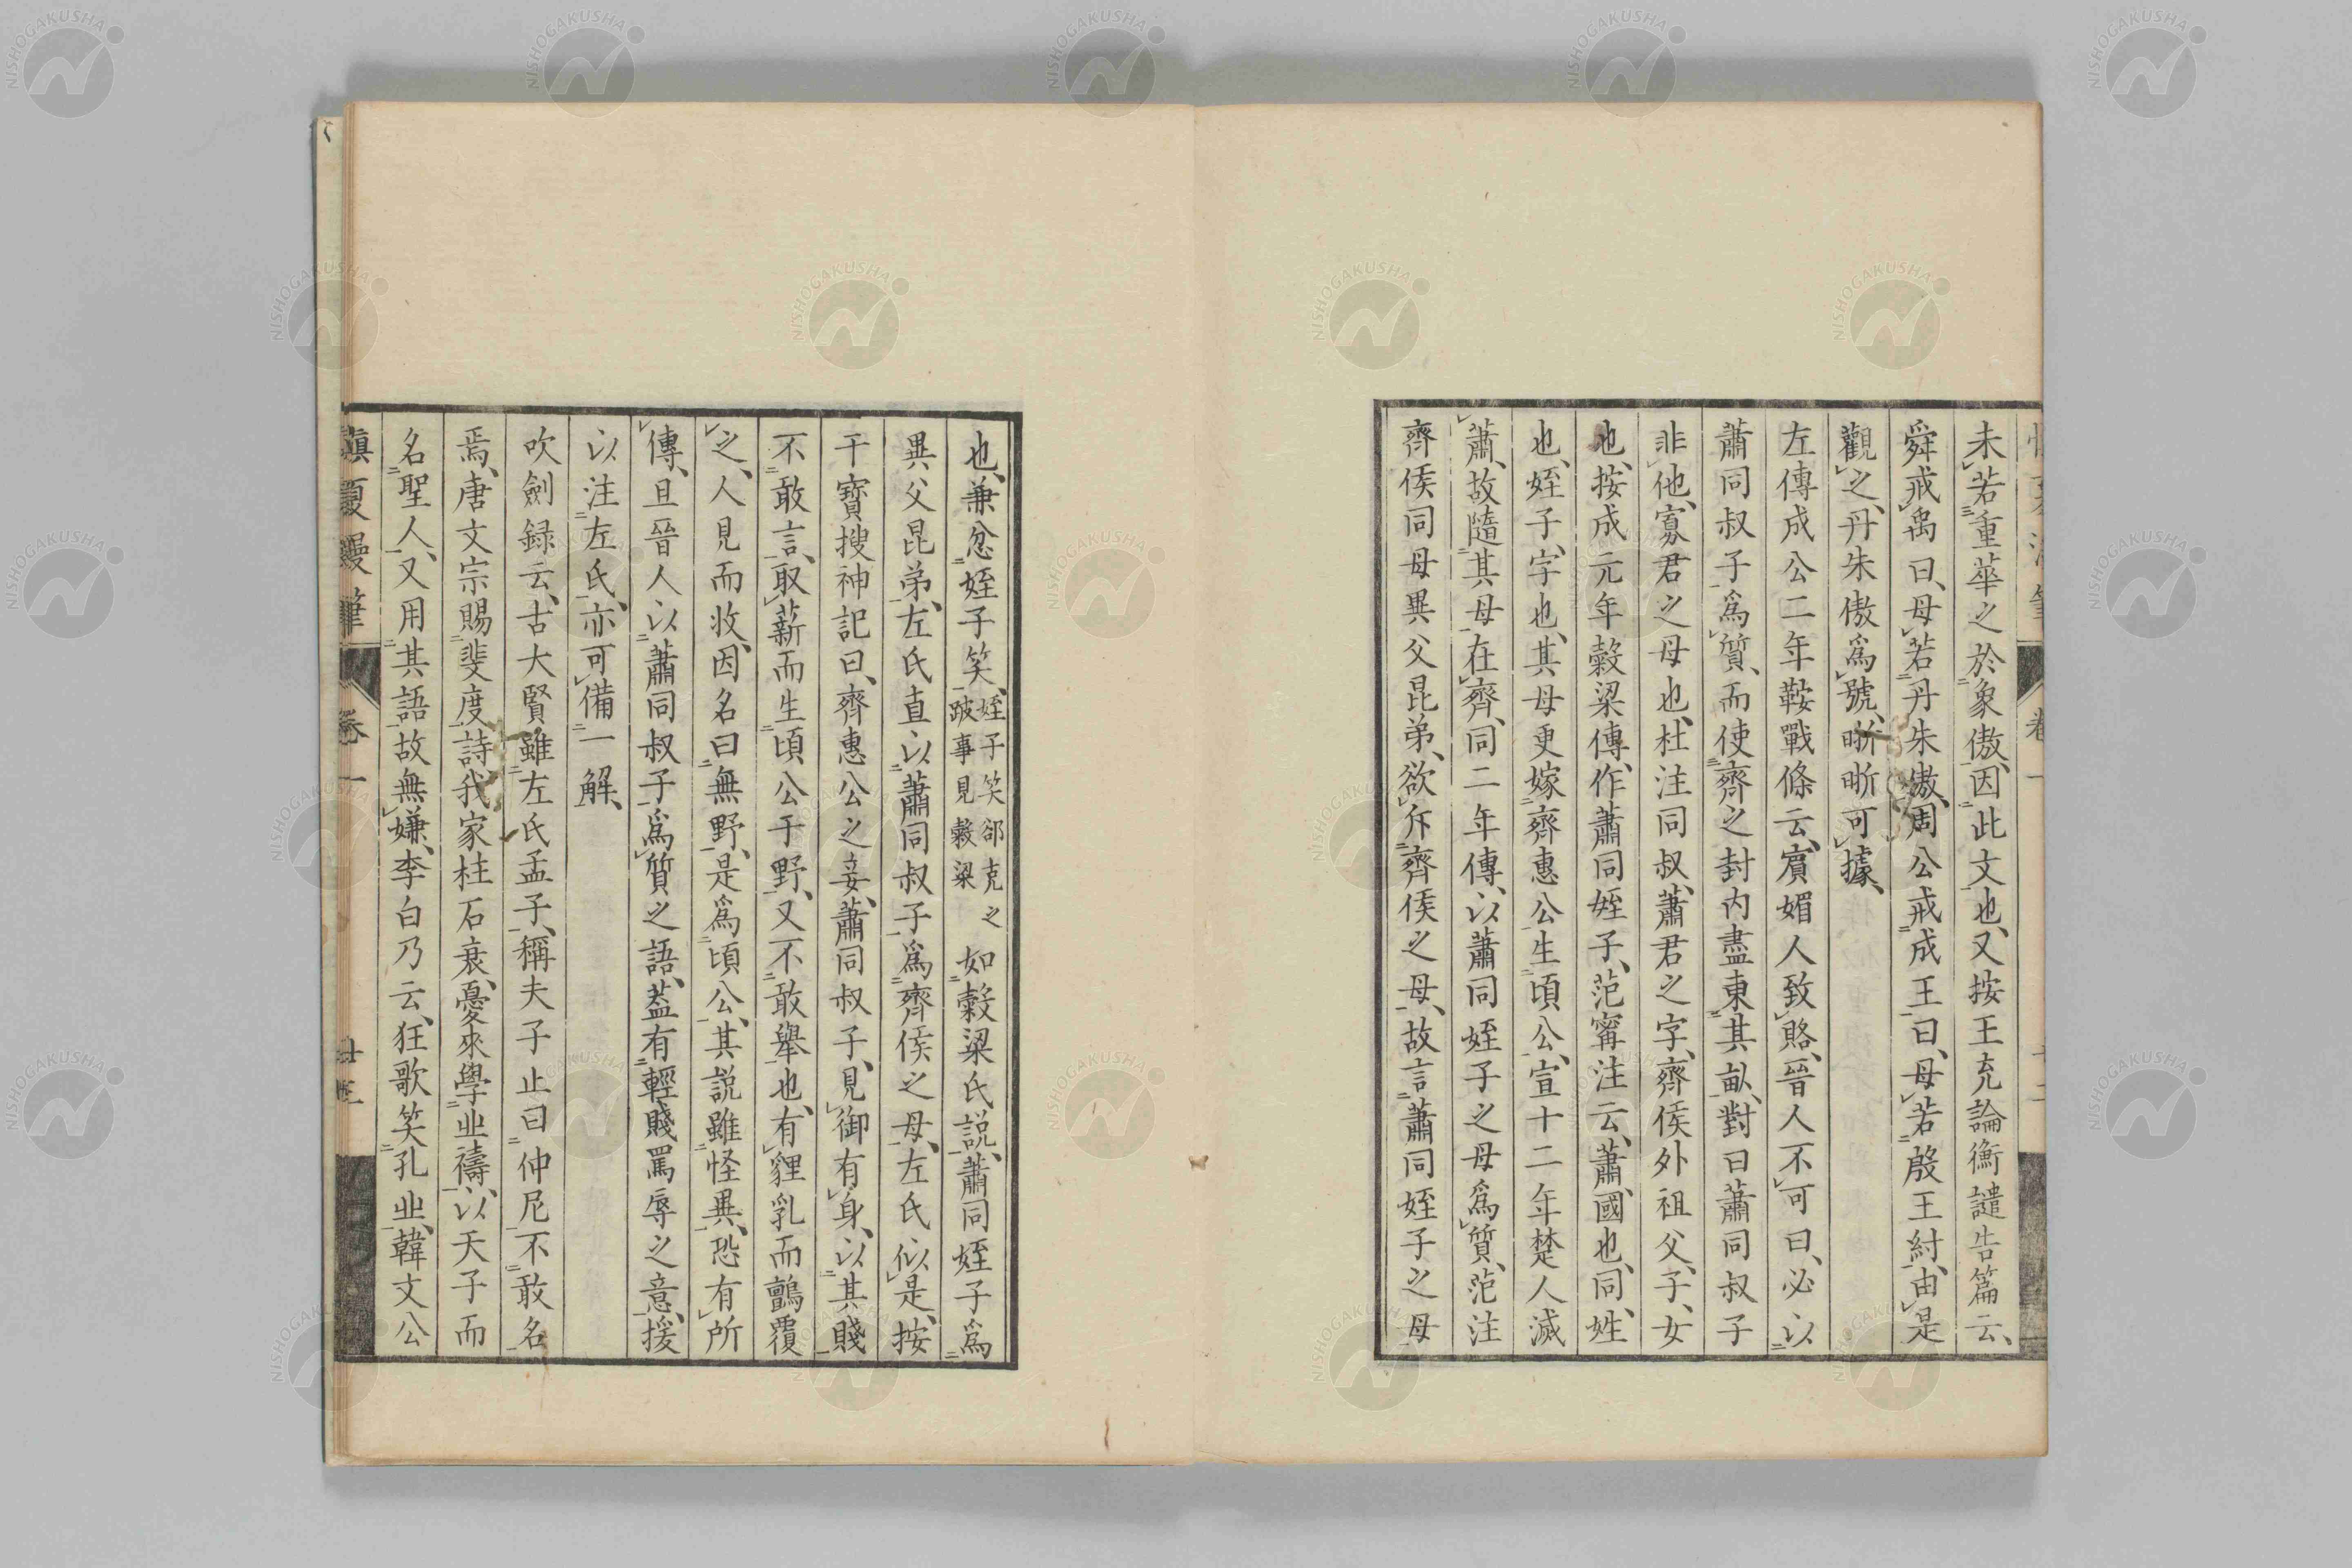 未若重華之於象傲、因此文也、又按王充論衡譴告篇云、
舜戒禹曰、母若丹朱傲、周公戒成王曰、母若殷王紂、由是
觀之、丹朱傲爲號、晰晰可據、
左傳成公二年鞍戰條云、賓媚人致賂、晉人不可曰、必以
蕭同叔子爲質、而使齊之封內盡東其畝、對曰蕭同叔子
非他、寡君之母也、杜注同叔、蕭君之字、齊侯外祖父、子、女
也、按成元年穀梁傳、作蕭同姪子、范甯注云、蕭國也、同、姓
也、姪子、字也、其母更嫁齊惠公生頃公、宣十二年楚人滅
蕭、故隨其母在齊、同二年傳、以蕭同姪子之母爲質、范注
齊侯同母異父昆弟、欲斥齊侯之母、故言蕭同姪子之母
也、兼忿姪子笑、
姪子笑郤克之
跛事見穀梁
如穀梁氏說、蕭同姪子爲
異父昆弟、左氏直以蕭同叔子爲齊侯之母、左氏似是、按
干寶搜神記曰、齊惠公之妾、蕭同叔子、見御有身、以其賤
不敢言、取薪而生頃公于野、又不敢擧也、有貍乳而鸇覆
之、人見而收、因名曰無野、是爲頃公、其說雖怪異、恐有所
傳、且晉人以蕭同叔子爲質之語、葢有輕賤罵辱之意、援
以注左氏、亦可備一解、
吹劍録云、古大賢雖左氏孟子、稱夫子止曰仲尼、不敢名
焉、唐文宗賜斐度詩、我家柱石衰、憂來學丠禱、以天子而
名聖人、又用其語、故無嫌、李白乃云、狂歌笑孔丠、韓文公
愼夏漫筆
卷一